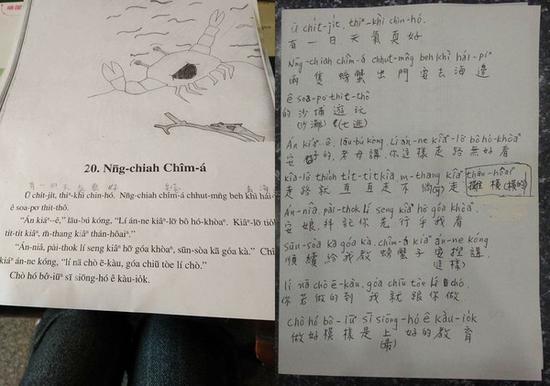 20. Nn̄g-chiah Chîm-á
Ū chi̍t-ji̍t, thiⁿ-khì chin-hó. Nn̄g-chiah chîm-á chhut-mn̂g beh khì hái-
ê soa-po͘ thit-thô.
"Án kiâⁿ--ê," lāu-bú kóng, "Lí án-ne kiâⁿ-lō͘ bô hó-khòaⁿ. Kiâⁿ-lō͘ tio̍h
ti̍t-ti̍t kiâⁿ, m̄-thang kiâⁿ thán-hôaiⁿ."
"Án-niâ, pài-thok lí seng kiâⁿ hō͘ góa khòaⁿ, sūn-sòa kā góa kà."
kiáⁿ án-ne kóng, "lí nā chò ē-kàu, góa chiū tòe lí chò."
Chò hó bô-iūⁿ sī siōng-hó ê kàu-io̍k.
Ū chi̍t-ji̍t, thiⁿ-khì chin-hó.
有一日天氣真好
Nn̄g-chiah chîm-á chhut-mn̂g beh khì hái-piⁿ
兩隻螃蟹出門要去海邊
ê soa-po͘ thit-thô
的沙埔遊玩
(沙灘) (𨑨迌)
Án kiâⁿ-ê, lāu-bú kóng, Lí án-ne kiâⁿ-lō͘ bô hó-khòaⁿ
好的,老母講,你這樣走路無好看
kiâ-lō͘ tio̍h ti̍t-ti̍t kiâ m̄-thang kiâⁿ thán-hôaiⁿ
走路就直直走不 走
Án-niâ, pài-thok lí seng kiâⁿ hō͘ góa khòaⁿ
娘,拜託你先行乎我看
sūn-sòa kā góa kà, chîm-á kiáⁿ án-ne kóng
順續給我教螃蟹子安 講
(這樣)
lí nā chò ē-kàu, góa chiū tòe lí chò,
你若做的到 我就跟你做
chò hó bô-iūⁿ sī siōng-hó ê kàu-io̍k
做好模樣是上好的教育
(最)